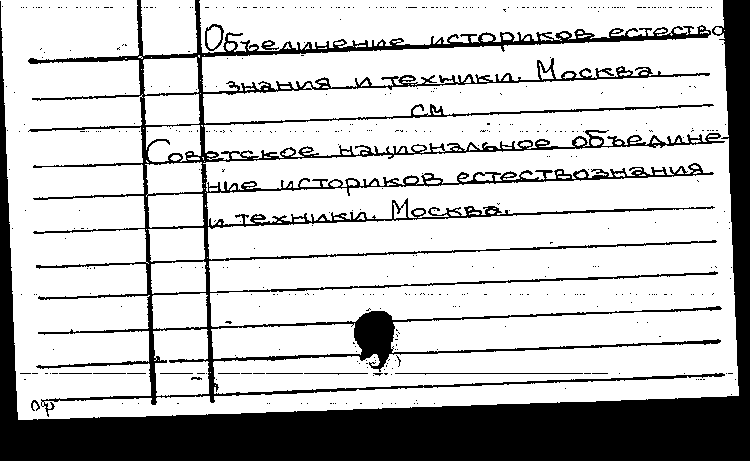 Объединение историков естество
знания и техники. Москва.
см
Советское национальное объедине-
ние историков естествознания
и техники. Москва.
оф